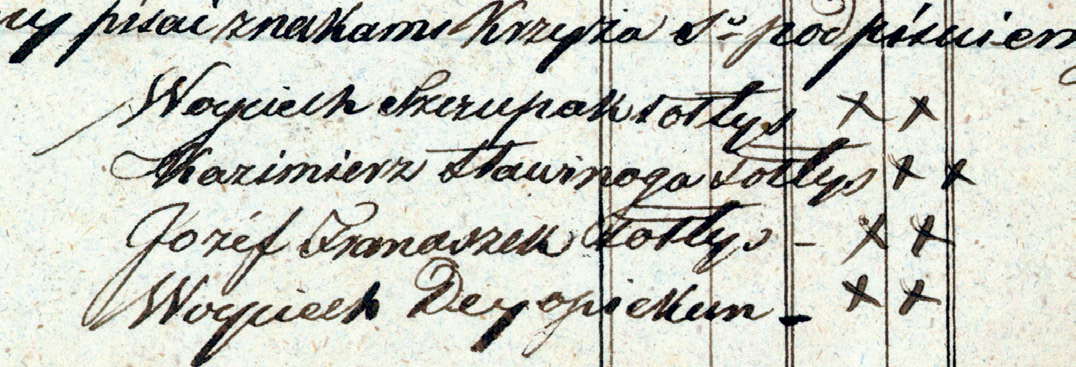 pisać znakami Krzyża S° podpisuiem
Woyciech Szczupak sołtys ++
Kazimierz Stawinoga sołtys ++
Jozéf Franaszek sołtys - ++
Woyciech Dey opiekun - ++